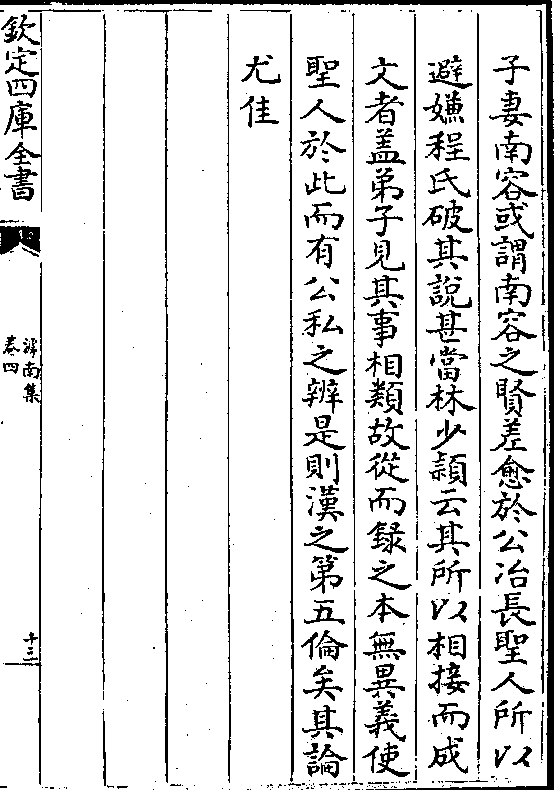 子妻南容或謂南容之賢差愈於公冶長聖人所以
避嫌程氏破其說甚當林少頴云其所以相接而成
文者盖弟子見其事相類故從而録之本無異義使
聖人於此而有公私之辨是則漢之第五倫矣其論
尤佳
欽定四庫全書
滹南集
卷四
十三